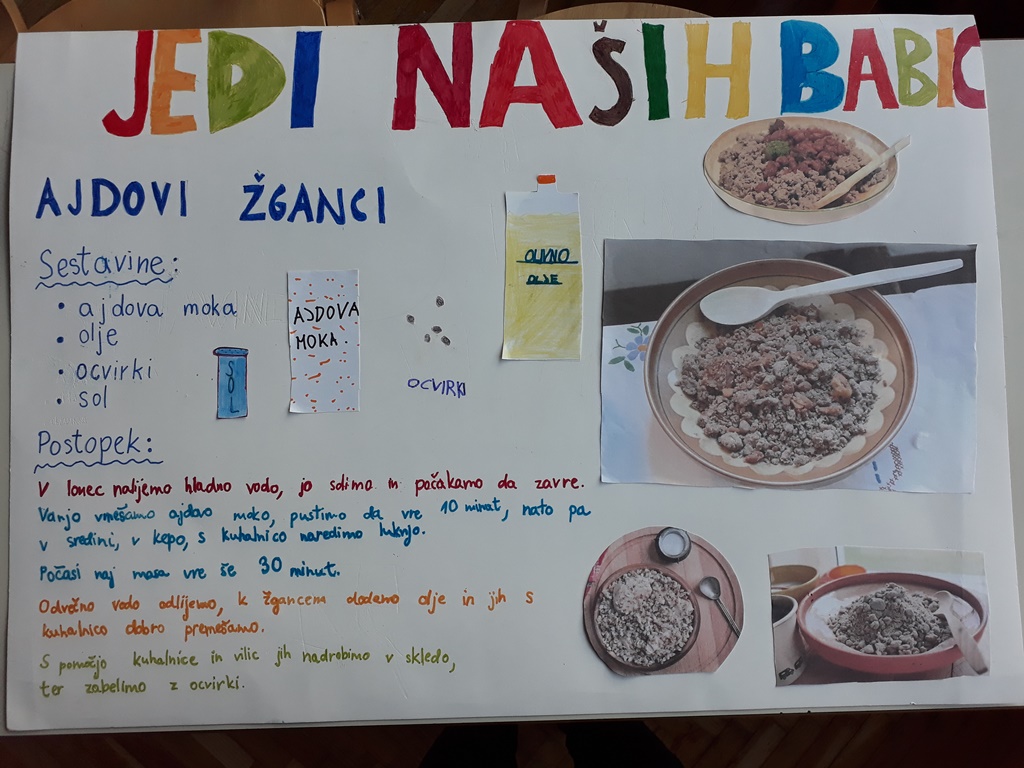 JEDI NAŠIH BABIC
AJDOVI ŽGANCI
Sestavine:
• ajdova moka
• olje
• ocvirki
• sol
SOL
AJDOVA
MOKA.
OCVIRKI
OLIVNO
OLJE
Postopek:
V lonec nalijemo hladno vodo, jo solimo in počakamo da zavre.
Vanjo vmešamo ajdovo moko, pustimo da vre 10 minut, nato pa
v sredini, v kepo, s kuhalnico naredimo luknjo.
Počasi naj masa vre še 30 minut.
Odvečno vodo odlijemo, k žgancem dodamo olje in jih s
kuhalnico dobro premešamo.
S pomočjo kuhalnice in vilic jih nadrobimo v skledo,
ter zabelimo z ocvirki.